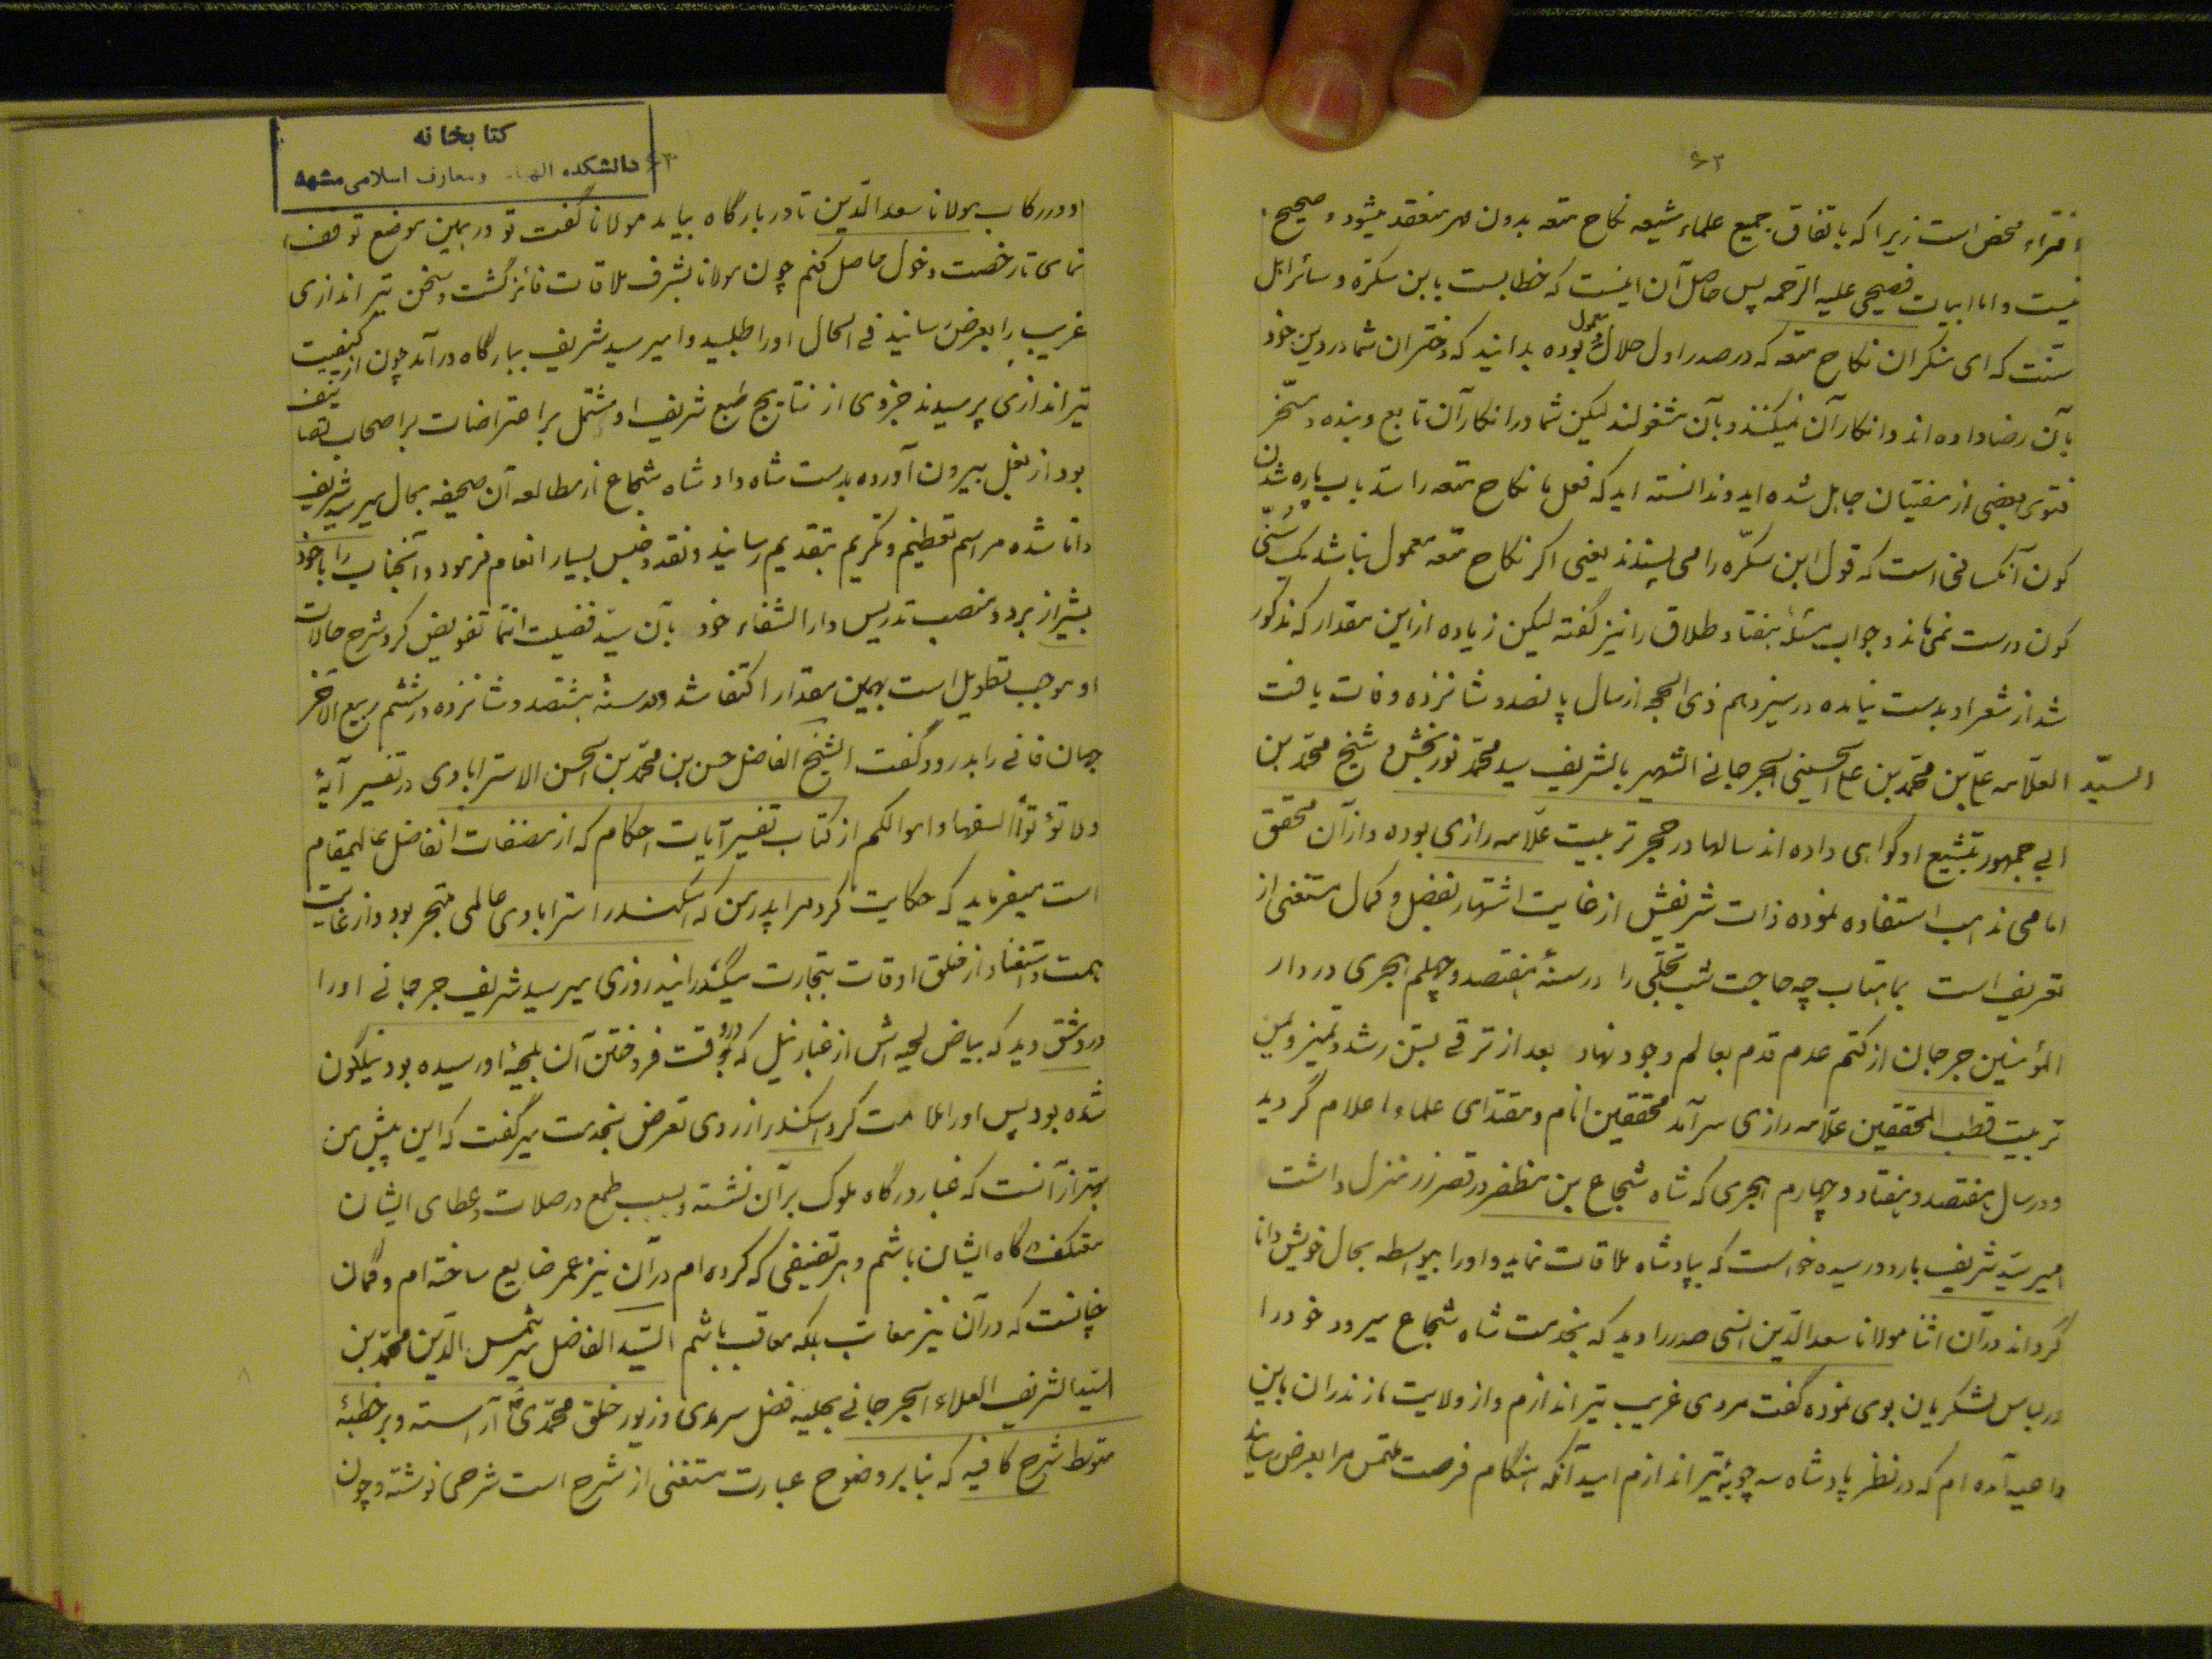 ۶۲
افتراء محض است زیرا که باتفاق جمیع علماء شیعه نکاح متعه بدون مهر منعقد میشود و صحیح
نیست و اما ابیات فصیحی علیه الرحمه پس حاصل آن اینست که خطابست بابن سکره و سائر اهل
سنّت که ای منکران نکاح متعه که در صدر اول حلال و معمول بوده بدانید که دختران شما در دین خود
بآن رضا داده اند و انکار آن نمیکنند و بآن مشغولند لیکن شما در انکار آن تابع و بنده و مسخّر
فتوی بعضی از مفتیان جاهل شده اید و ندانسته اید که فعل با نکاح متعه را سد باب پاره شدن
کون آنکسانی است که قول ابن سکّره را می پسندند یعنی اکر نکاح متعه معمول نباشد یک سنّی
کون درست نمی ماند و جواب مسئلهٔ هفتاد طلاق را نیز گفته لیکن زیاده از این مقدار که مذکور
شد از شعر او بدست نیامده در سیزدهم ذی الحجه از سال پانصد و شانزده وفات یافت
السیّد العلّامه علی بن محمّد بن علی الحسینی الجرجانی الشهیر بالشریف سید محمّد نوربخش و شیخ محمّد بن
ابی جمهور بتشیع او گواهی داده اند سالها در حجر تربیت علّامه رازی بوده و از آن محقق
امامی مذهب استفاده نموده ذات شریفش از غایت اشتهار بفضل و کمال مستغنی از
تعریف است بماهتاب چه حاجت شب تجلّی را در سنهٔ هفتصد و چهلم هجری در دار
المؤمنین جرجان از کتم عدم قدم بعالم وجود نهاد بعد از ترقی بسن رشد و تمیز و یمن
تربیت قطب المحققین علامه رازی سرآمد محققین انام و مقتدای علماء اعلام گردید
و در سال هفتصد و هفتاد و چهارم هجری که شاه شجاع بن مظفر در قصر زرد منزل داشت
امیر سیّد شریف بارد و رسیده خواست که بپادشاه ملاقات نماید و او را بیواسطه بحال خویش دانا
گرداند در آن اثنا مولانا سعد الدّین انسی صدر را دید که بخدمت شاه شجاع میرود خود را
در لباس لشکریان بوی نموده گفت مردی غریب تیراندازم و از ولایت مازندران باین
داعیه آمده ام که در نظر پادشاه سه چوبه تیر اندازم امید آنکه هنگام فرصت ملتمس مرا بعرض رسانید
کتابخانه
دانشکده الهیات ومعارف اسلامی مشهد
۶۳
و در رکاب مولانا سعد الدّین تا در بارگاه بیامد مولانا گفت تو در همین موضع توقف
نمای تا رخصت دخول حاصل کنم چون مولانا بشرف ملاقات فائز گشت و سخن تیر اندازی
غریب را بعرض رسانید فی الحال او را طلبید و امیر سید شریف ببارگاه درآمد چون از کیفیت
تیر اندازی پرسیدند جزوی از نتایج طبع شریف او مشتمل بر اعتراضات بر اصحاب تصانیف
بود از بغل بیرون آورده بدست شاه داد شاه شجاع از مطالعه آن صحیفه بحال میر سید شریف
دانا شده مراسم تعظیم و تکریم بتقدیم رسانید و نقد و جنس بسیار انعام فرمود و آنجناب را با خود
بشیراز برد و منصب تدریس دار الشفاء خود بآن سیّد فضیلت انتما تفویض کرد شرح حالات
او موجب تطویل است بهمین مقدار اکتفا شد و در سنهٔ هشتصد و شانزده در ششم ربیع الآخر
جهان فانی را بدرود گفت الشیخ الفاضل حسن بن محمّد بن الحسن الاسترابادی در تفسیر آیهٔ
ولا تؤتوا السفهاء اموالکم از کتاب تفسیر آیات احکام که از مصنفات آنفاضل عالیمقام
است میفرماید که حکایت کرد مرا پدر من که اسکندر استرابادی عالمی متبحر بود و از غایت
همت و استغناء از خلق اوقات بتجارت میگذرانید روزی میر سید شریف جرجانی او را
در دمشق دید که بیاض لحیه اش از غبار نیل که در وقت فروختن آن بلحیهٔ او رسیده بود نیلگون
شده بود پس او را ملامت کرد اسکندر از روی تعرض بخدمت میر گفت که این پیش من
بهتر از آنست که غبار درگاه ملوک بر آن نشسته و بسبب طمع در صلات و عطای ایشان
معتکف درگاه ایشان باشم و هر تصنیفی که کرده ام در آن نیز عمر ضایع ساخته ام و گمان
چنانست که در آن نیز معاتب بلکه معاقب باشم السیّد الفاضل میر شمس الدّین محمّد بن
السّید الشریف العلاء الجرجانی بحلیه فضل سرمدی و زیور خلق محمّدی آراسته و بر خطبهٔ
متوسط شرح کافیه که بنابر وضوح عبارت مستغنی از شرح است شرحی نوشته و چون